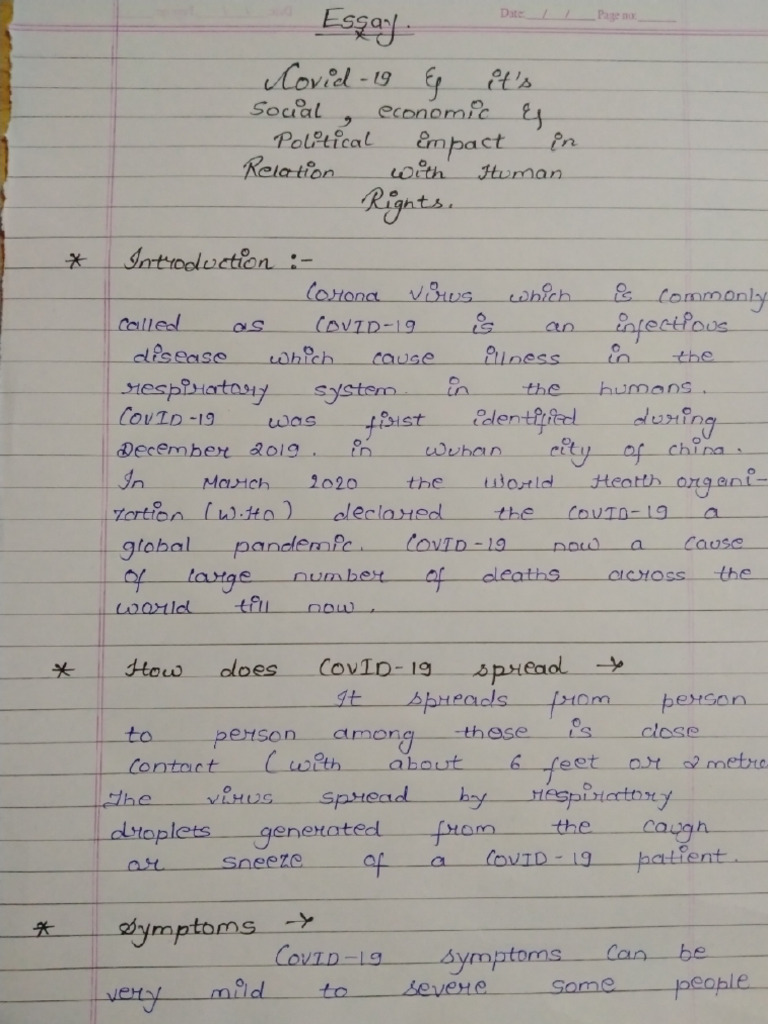 Date __/__/__ Page no: ____
Essay.
Covid-19 & it's
Social, economic &
Political impact in
Relation with Human
Rights.
* Introduction :-
Corona virus which is commonly
called as COVID-19 is an infectious
disease which cause illness in the
respiratory system. in the humans.
COVID-19 was first identified during
December 2019. in wuhan city of china.
In March 2020 the World Health organi-
zation (W.HO) declared the COVID-19 a
global pandemic. COVID-19 now a cause
of large number of deaths across the
world till now.
* How does COVID-19 spread →
It spreads from person
to person among those is close
contact (with about 6 feet or 2 metre
The virus spread by respiratory
droplets generated from the caugh
or sneeze of a COVID-19 patient.
* Symptoms →
COVID-19 symptoms can be
very mild to severe some people